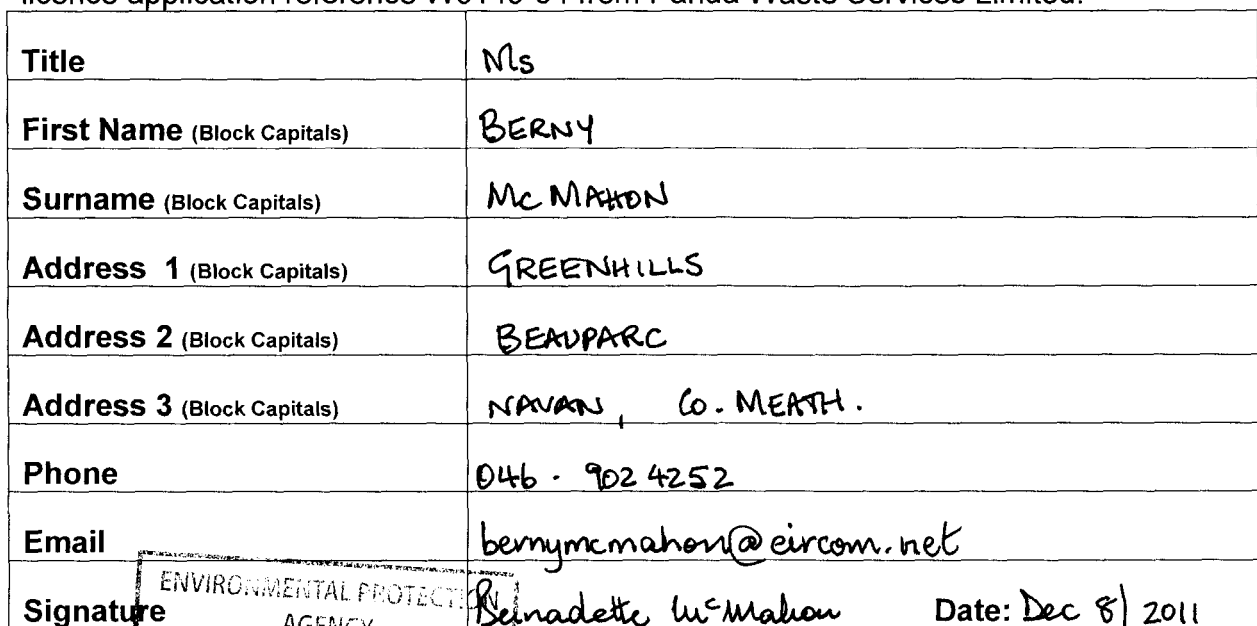 Title Ms
First Name (Block Capitals) BERNY
Surname (Block Capitals) Mc MAHON
Address 1 (Block Capitals) GREENHILLS
Address 2 (Block Capitals) BEAUPARC
Address 3 (Block Capitals) NAVAN, Co. MEATH.
Phone 046 - 902 4252
Email bernymcmahon@eircom.net
ENVIRONMENTAL PROTECTION
Signature Bernadette McMahon Date: Dec 8/ 2011
AGENCY